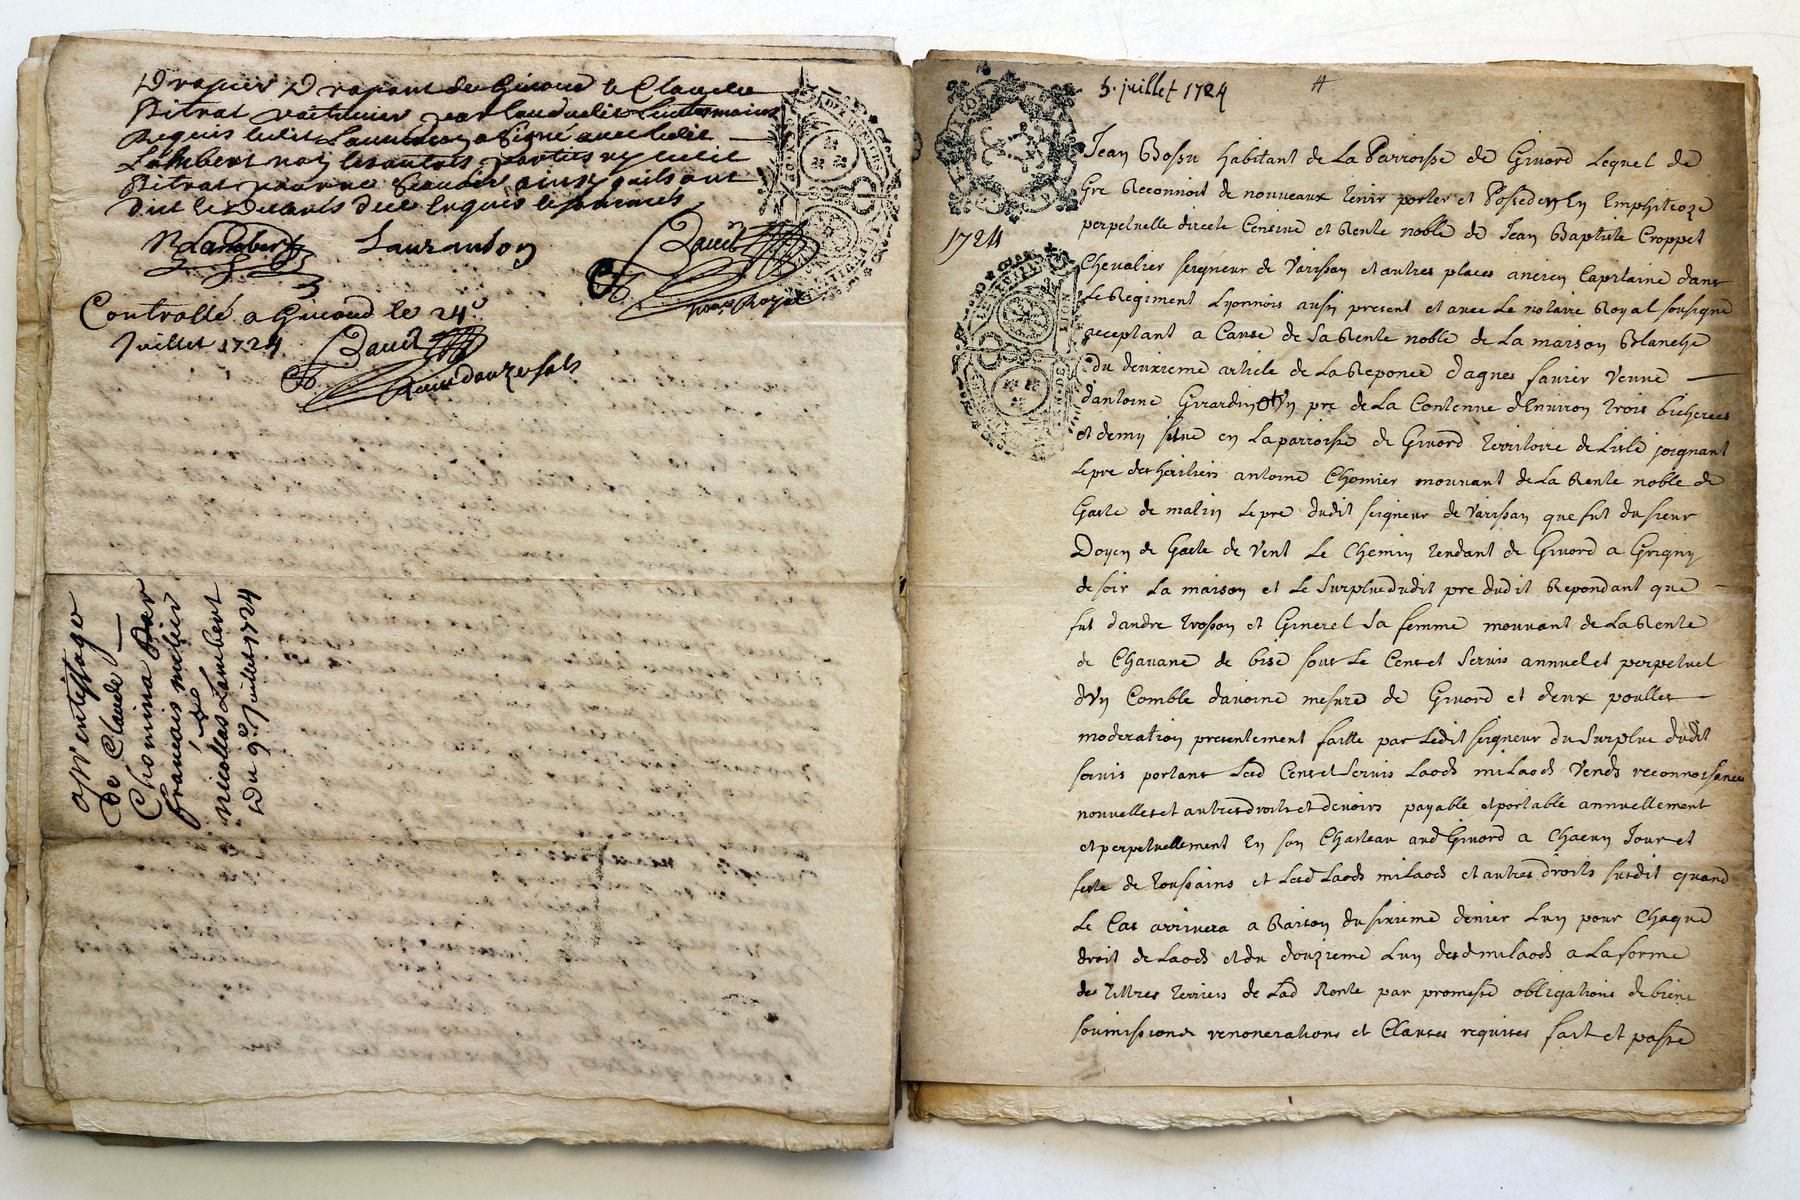 Drapier Drapant de Givord & Claude
Pitrat voiturier
Requis ledit Laurandon a signé avec ledit
Lambert non les autres parties ny ledit
Pitrat pour ne scavoir ainsy quils ont
dit
N Lambert Laurandon Bavet
nore Royal
Controllé a Givord le 24e
Juillet 1724 Bavet
Reçu douze sols
aprentissage
de Claude
Chomina Par
francois metier
nicollas Lambert
Du 9e Juillet 1724
5. juillet 1724
1724
Jean Bossu habitant de La Parroisse de Givord Lequel de
Gre Reconnoit de nouveaux tenir porter et Posseder En Emphiteoze
perpetuelle directe Censive et Rente noble de Jean Baptiste Croppet
Chevalier seigneur de Varissan et autres places ancien Capitaine dans
Le Regiment Lyonnois ausy present et avec Le notaire Royal sousigne
acceptant a Cause de Sa Rente noble de La maison Blanche
du deuxieme article de La Reponce d'agnes favier veuve
d'antoine Girardin Un pre de La Contenue d'Environ trois bicherees
et demy situe en La parroisse de Givord territoire de Lisle joignant
Le pre des heritiers antoine Chomier mouvant de La Rente noble de
Gaste de matin Le pre dudit seigneur de Varissan que fut du sieur
Doyen de Gaste de vent Le Chemin tendant de Givord a Grigny
de soir La maison et Le Surplus dudit pre dudit Repondant que
fut d'andre trossan et Ginerel Sa femme mouvant de La Rente
de Chavane de bise sous Le Cens et Servis annuel et perpetuel
d'Un Comble d'avoine mesure de Givord et deux poulles
moderation presentement faitte par Ledit seigneur du Surplus dudit
servis portant Lesd Cens et Servis Laods miLaods Vends reconnoissances
nouvelles et autres droits et devoirs payable et portable annuellement
et perpetuellement En son Chasteau aud Givord a Chacun Jour et
feste de toussains et Lesd Laods miLaods et autres droits susdit quand
Le Cas arrivera a Raison du sixieme denier Lun pour Chaque
droit de Laods et du douzieme Lun des d milaods a La forme
des tittres terriers de Lad Rente par promesse obligations de biens
soumissions renonciations et Clauses requises fait et passé